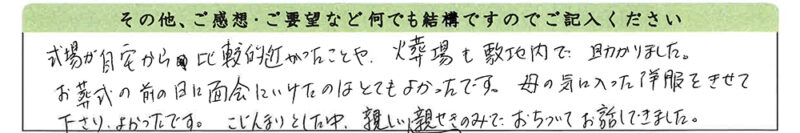 その他、ご感想・ご要望など何でも結構ですのでご記入ください
式場が自宅から比較的近かったことや、火葬場も敷地内で助かりました。
お葬式の前の日に面会にいけたのはとてもよかったです。母の気に入った洋服をきせて
下さり、よかったです。こじんまりとした中、親しい親せきのみでおちついてお話しできました。